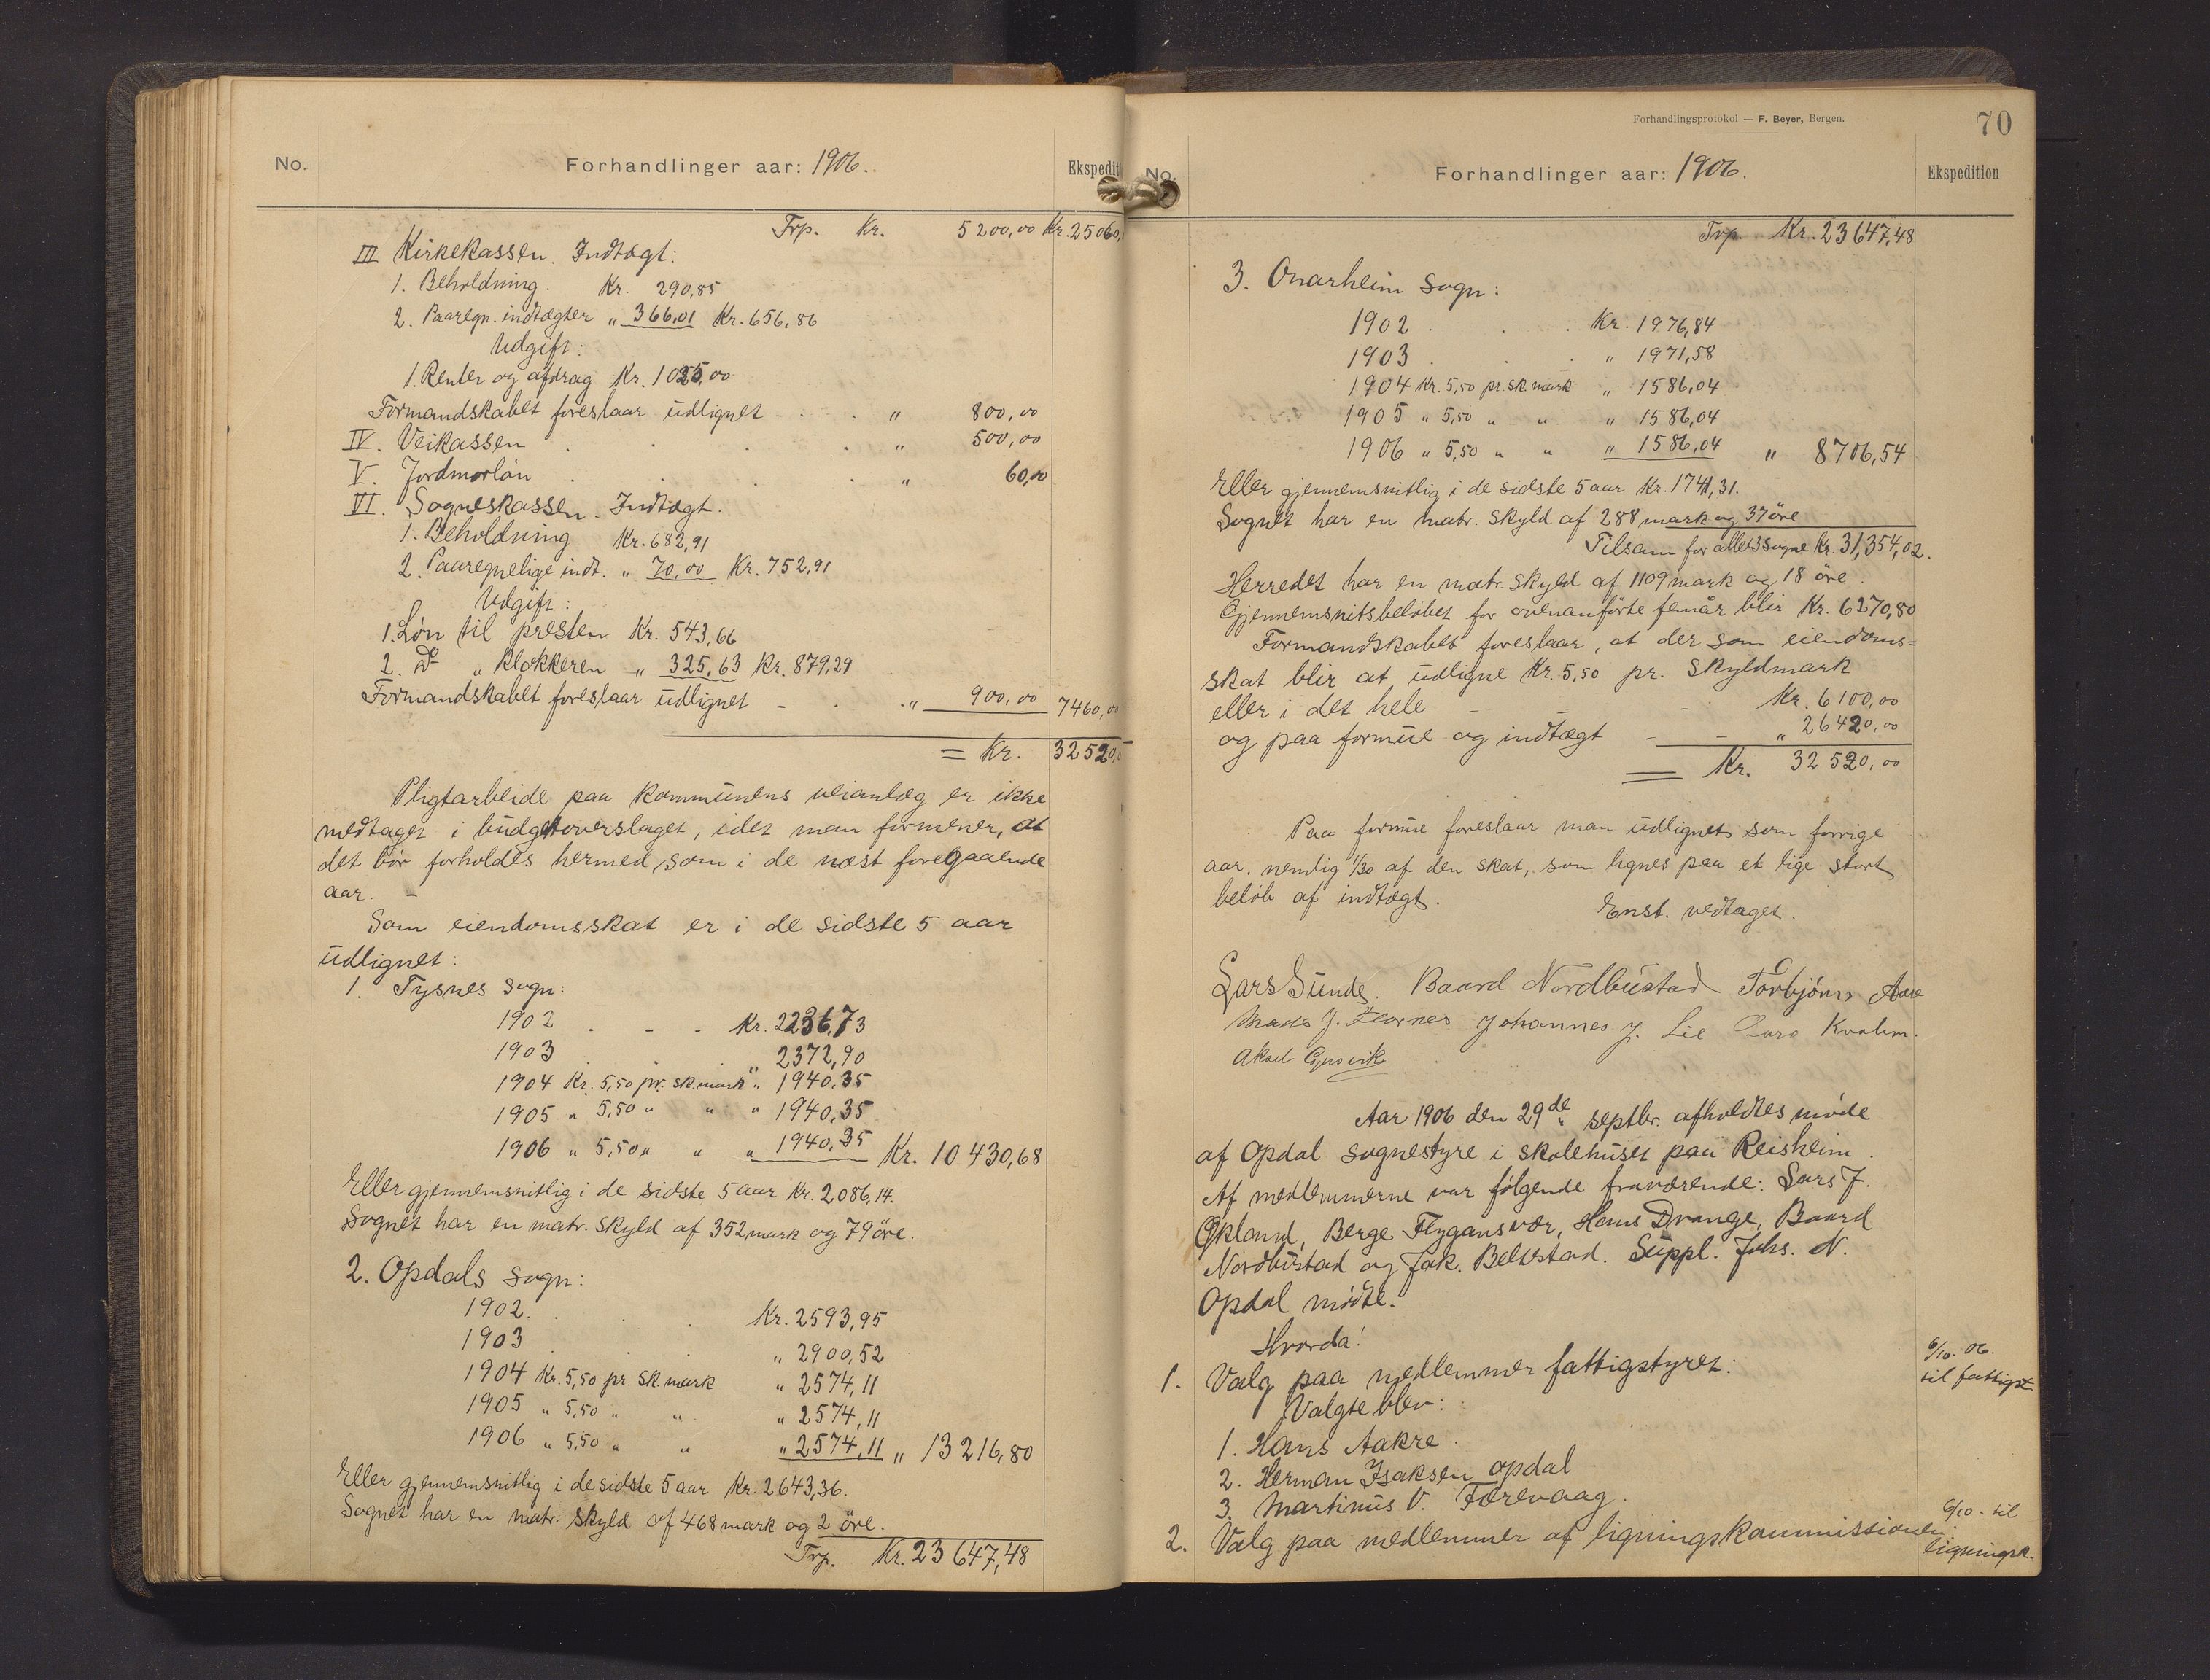 No.
Forhandlinger aar: 1906.
Ekspedit
Trp. Kr. 5200,00 Kr. 25060,
III Kirkekassen. Indtægt:
1. Beholdning. Kr. 290,85
2. Paaregn. indtægter " 366,01 Kr. 656,86
Udgift:
1. Renter og afdrag Kr. 1025,00
Formandskabet foreslaar udlignet . . " 800,00
IV. Veikassen . . . " 500,00
V. Jordmorlån . . . " 60,00
VI. Sogneskassen. Indtægt.
1. Beholdning Kr. 682,91
2. Paaregnelige indt. " 70,00 Kr. 752,91
Udgift:
1. Løn til presten Kr. 543,66
2. Do " klokkeren " 325,63 Kr. 879,29
Formandskabet foreslaar udlignet - . . " 900,00 7460,00
= Kr. 32520,
Pligtarbeide paa kommunens veianlæg er ikke
medtaget i budgetoverslaget, idet man formener, at
det bør forholdes hermed, som i de næst foregaaende
aar. -
Som eiendomsskat er i de sidste 5 aar
udlignet:
1. Tysnes sogn:
1902 . - - Kr. 2236,73
1903 . . " 2372,90
1904 Kr. 5,50 pr. sk.mark " 1940,35
1905 " 5,50 " " " 1940,35
1906 " 5,50 " " " 1940,35 Kr. 10430,68
Eller gjennemsnitlig i de sidste 5 aar Kr. 2086,14.
Sognet har en matr. skyld af 352 mark og 79 öre.
2. Opdals sogn:
1902. . . . Kr. 2593,95
1903 . . " 2900,52
1904 Kr. 5,50 pr. sk.mark " 2574,11
1905 " 5,50 " " " 2574,11
1906 " 5,50 " " " 2574,11 " 13216,80
Eller gjennemsnitlig i de sidste 5 aar Kr. 2643,36.
Sognet har en matr. skyld af 468 mark og 2 öre.
Trp. Kr. 23647,48
Forhandlingsprotokol — F. Beyer, Bergen.
70
No.
Forhandlinger aar: 1906.
Ekspedition
Trp. Kr. 23647,48
3. Onarheim sogn:
1902 . . . Kr. 1976,84
1903 . . " 1971,58
1904 Kr. 5,50 pr. sk.mark " 1586,04
1905 " 5,50 " " " 1586,04
1906 " 5,50 " " " 1586,04 " 8706,54
Eller gjennemsnitlig i de sidste 5 aar Kr. 1741,31.
Sognet har en matr. skyld af 288 mark og 37 öre
Tilsam for alle 3 sogne Kr. 31,354,02.
Herredet har en matr. skyld af 1109 mark og 18 öre.
Gjennemsnitsbeløbet for ovenanførte femår blir Kr. 6270,80
Formandskabet foreslaar, at der som eiendoms=
skat blir at udligne Kr. 5,50 pr. skyldmark
eller i det hele - - Kr. 6100,00
og paa formue og indtægt - - " 26420,00
= Kr. 32520,00
Paa formue foreslaar man udlignet som forrige
aar, nemlig 1/30 af den skat, som lignes paa et lige stort
beløb af indtægt.
Enst. vedtaget.
Lars Sunde. Baard Nordbustad Torbjörn Aase
Mads J. Flornes Johannes J. Lie Lars Kvalem.
Aksel Gjøsvik
Aar 1906 den 29de septbr. afholdtes møde
af Opdal sognestyre i skolehuset paa Reisheim.
Af medlemmerne var følgende fraværende: Lars J.
Økland, Berge Flygansvær, Hans Drange, Baard
Nordbustad og Jak. Belkstad. Suppl. Johs. N.
Opdal mødte.
Hvorda:
1. Valg paa medlemmer fattigstyret:
6/10. 06.
til fattigst
Valgte blev:
1. Hans Aakre.
2. Herman Isaksen Opdal
3. Martinus V. Færevaag.
2. Valg paa medlemmer af ligningskommissionen.
6/10 - til
ligningsk.